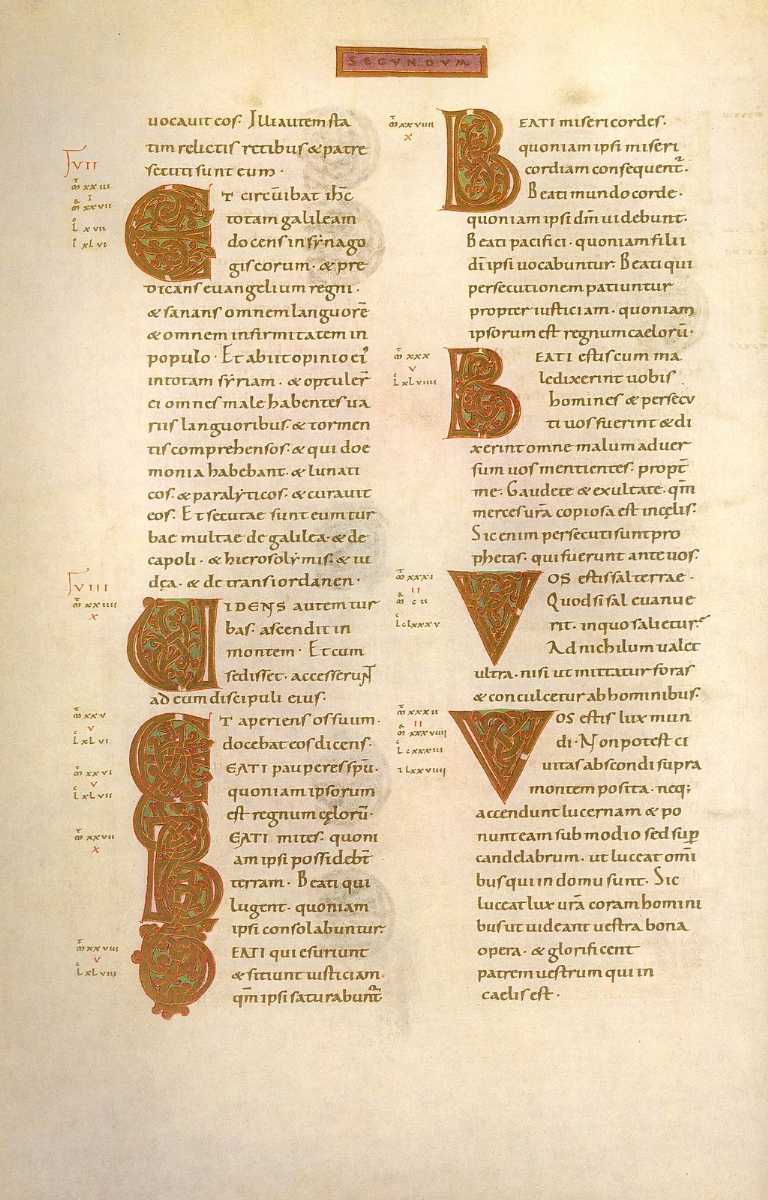 SECUNDUM
uocauit eos. Illi autem sta
tim relictis retibus & patre
secuti sunt eum.
VII
m̄ xxiii
I
m̄ xxvii
L xvii
I xlvi
ET circūibat ih̄c
totam galileam
docens in synago
gis eorum. & pre
dicans euangelium regni.
& sanans omnem languorē
& omnem infirmitatem in
populo. Et abiit opinio ei'
in totam syriam. & optuler̄
ei omnes male habentes ua
riis languoribus & tormen
tis comprehensos. & qui doe
monia habebant. & lunati
cos. & paralyticos. & curauit
eos. Et secutae sunt eum tur
bae multae de galilea. & de
capoli. & hierosolymis. & iu
dęa. & de trans iordanen.
VIII
m̄ xxiiii
x
UIDENS autem tur
bas. ascendit in
montem. Et cum
sedisset. accesserunt
ad eum discipuli eius.
m̄ xxv
v
L xLvi
ET aperiens os suum.
docebat eos dicens.
m̄ xxvi
v
L xLvii
BEATI pauperes spū.
quoniam ipsorum
est regnum cęlorū.
m̄ xxvii
x
BEATI mites. quoni
am ipsi possidebt̄
terram. Beati qui
lugent. quoniam
ipsi consolabuntur.
m̄ xxviii
v
L xLviii
BEATI qui esuriunt
& sitiunt iusticiam.
qm̄ ipsi saturabunt̄
m̄ xxviiii
x
BEATI misericordes.
quoniam ipsi miseri
cordiam consequent̄.
Beati mundo corde.
quoniam ipsi dm̄ uidebunt.
Beati pacifici. quoniam filii
dī ipsi uocabuntur. Beati qui
persecutionem patiuntur
propter iusticiam. quoniam
ipsorum est regnum caelorū.
m̄ xxx
v
L xLviiii
BEATI estis cum ma
ledixerint uobis
homines & persecu
ti uos fuerint & di
xerint omne malum aduer
sum uos mentientes. propt̄
me. Gaudete & exultate. qm̄
merces ur̄a copiosa est in cęlis.
Sic enim persecuti sunt pro
phetas. qui fuerunt ante uos.
m̄ xxxi
II
m̄ cii
L clxxxv
VOS estis sal terrae.
Quod si sal euanue
rit. in quo salietur?
Ad nichilum ualet
ultra. nisi ut mittatur foras
& conculcetur ab hominibus.
m̄ xxxii
II
m̄ xxxviiii
L cxxxiii
L lxxviiii
VOS estis lux mun
di. Non potest ci
uitas abscondi supra
montem posita. neq;
accendunt lucernam & po
nunt eam sub modio sed sup̄
candelabrum. ut luceat om̄i
bus qui in domu sunt. Sic
luceat lux ur̄a coram homini
bus ut uideant uestra bona
opera. & glorificent
patrem uestrum qui in
caelis est.